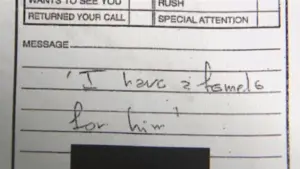 WANTS TO SEE YOU RUSH
RETURNED YOUR CALL SPECIAL ATTENTION
MESSAGE
"I have a female
for him"